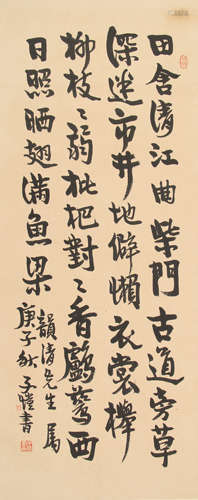 田舍清江曲柴門古道旁草
深迷市井地僻懶衣裳櫸
柳枝〻弱枇杷對〻香鸕鶿西
日照晒翅滿魚梁
韻清先生屬
庚子秋子愷書